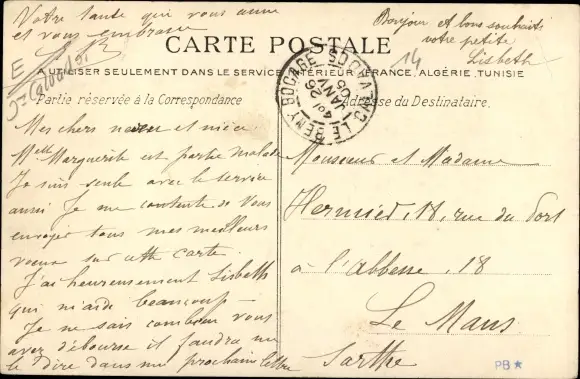 Votre tante qui vous aime
et vous embrasse
Bonjour et bons souhaits
votre petite
Lisbeth
CARTE POSTALE
14
E
A UTILISER SEULEMENT DANS LE SERVICE INTÉRIEUR (FRANCE, ALGÉRIE, TUNISIE
Partie réservée à la Correspondance
Adresse du Destinataire.
LE BENY BOCAGE CALVADOS
26
JANV
05
Mes chers neveu et nièce
Melle Marguerite est partie malade
Je suis seule avec le service
aussi Je me contente de vous
envoyer tous mes meilleurs
voeux sur cette carte
J'ai heureusement Lisbeth
qui m'aide beaucoup —
Je ne sais combien vous
avez débourse il faudra me
le dire dans une prochaine lettre
Monsieur et Madame
Hermied, 18, rue du Port
à l'Abbesse, 18
Le Mans
Sarthe
PB★